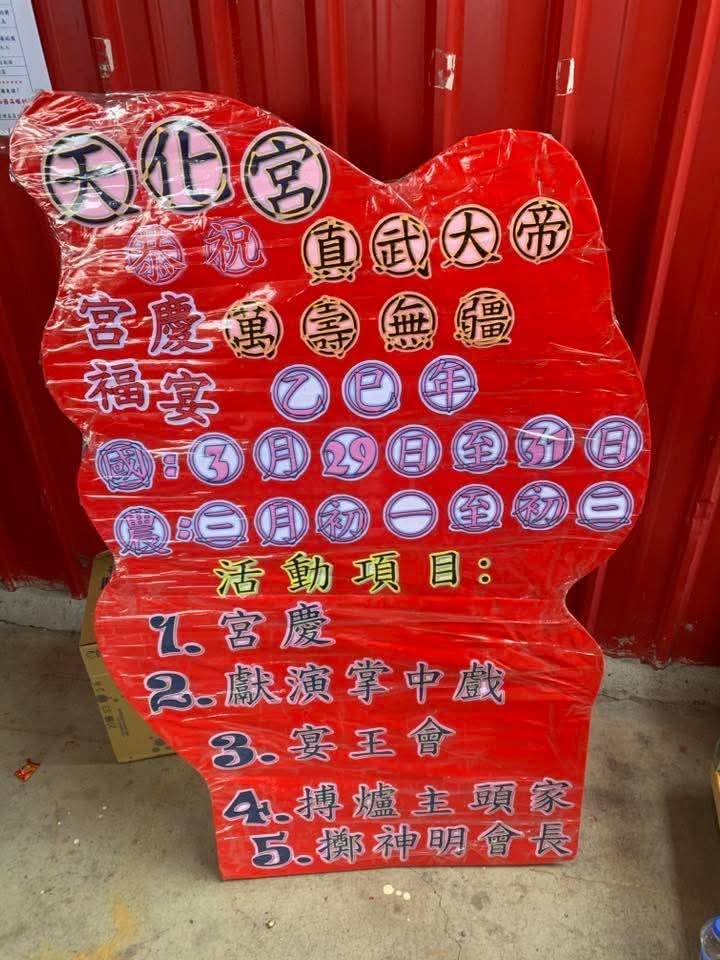 天化宮
恭祝 真武大帝
宮慶 萬壽無疆
福宴 乙巳年
國:3月29日至31日
農:三月初一至初三
活動項目:
1.宮慶
2.獻演掌中戲
3.宴王會
4.搏爐主頭家
5.擲神明會長